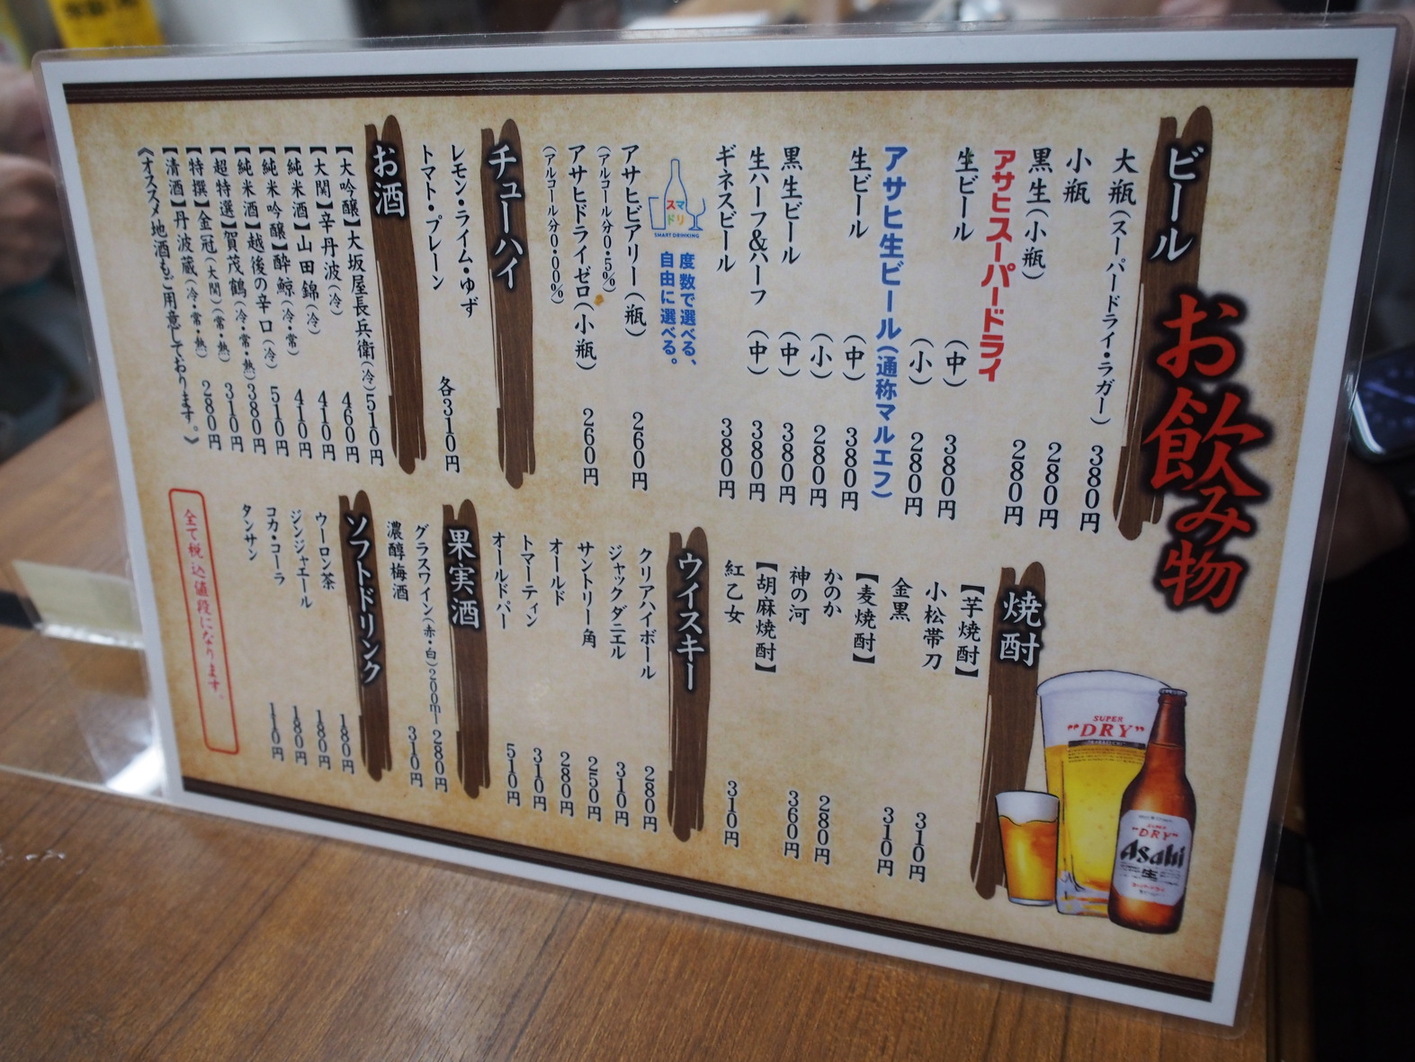 お飲み物
ビール
大瓶(スーパードライ・ラガー) 380円
小瓶 280円
黒生(小瓶) 280円
アサヒスーパードライ
生ビール (中) 380円
(小) 280円
アサヒ生ビール(通称マルエフ)
生ビール (中) 380円
(小) 280円
黒生ビール (中) 380円
生ハーフ&ハーフ (中) 380円
ギネスビール 380円
スマドリ
SMART DRINKING
度数で選べる、
自由に選べる。
アサヒビアリー(瓶) 260円
(アルコール分0.5%)
アサヒドライゼロ(小瓶) 260円
(アルコール分0.00%)
チューハイ
レモン・ライム・ゆず
トマト・プレーン 各310円
お酒
【大吟醸】大坂屋長兵衛(冷) 510円
【大関】辛丹波(冷) 460円
【純米酒】山田錦(冷) 410円
【純米吟醸】酔鯨(冷・常) 410円
【純米酒】越後の辛口(冷) 510円
【超特選】賀茂鶴(冷・常・熱) 380円
【特撰】金冠(大関)(常・熱) 310円
【清酒】丹波蔵(冷・常・熱) 280円
《オススメ地酒もご用意しております。》
焼酎
【芋焼酎】
小松帯刀 310円
金黒 310円
【麦焼酎】
かのか 280円
神の河 360円
【胡麻焼酎】
紅乙女 310円
ウイスキー
クリアハイボール 280円
ジャックダニエル 310円
サントリー角 250円
オールド 280円
トマーティン 310円
オールドパー 510円
果実酒
グラスワイン(赤・白)200ml 280円
濃醇梅酒 310円
ソフトドリンク
ウーロン茶 180円
ジンジャエール 180円
コカ・コーラ 180円
タンサン 110円
全て税込値段になります。
SUPER
"DRY"
SUPER
"DRY"
Asahi
生